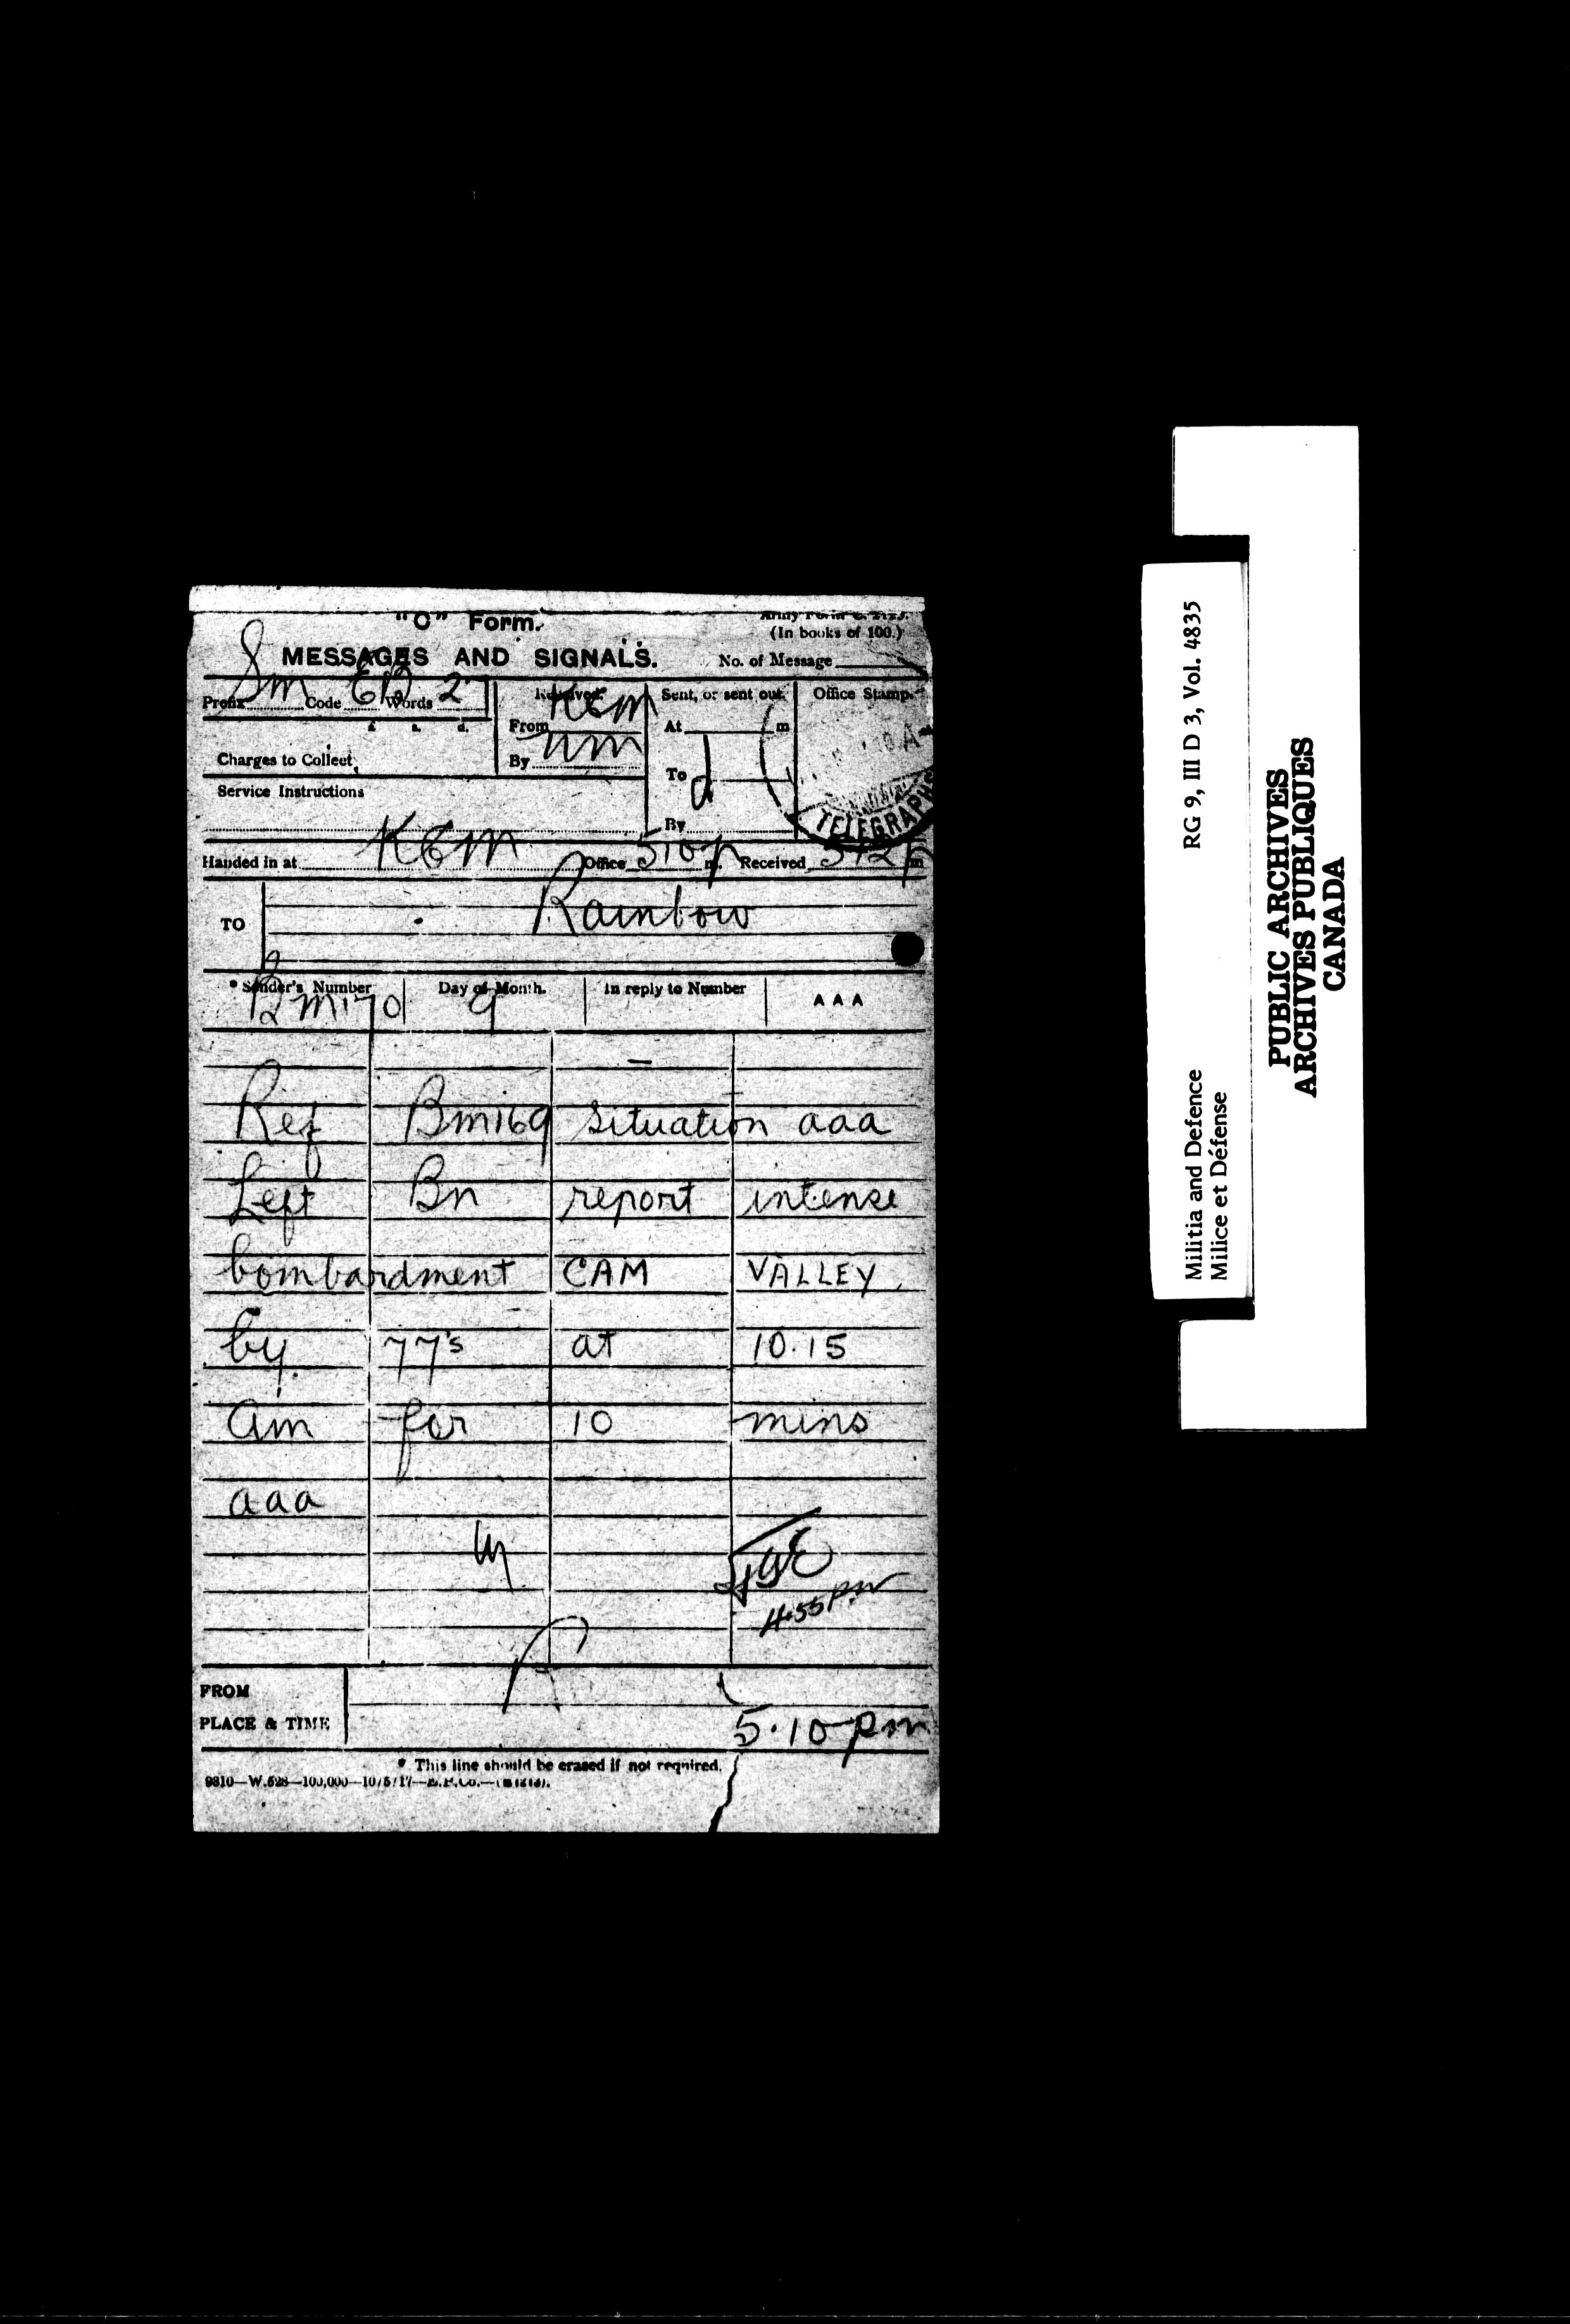 "C" Form.
Army Form C. 2123.
(In books of 100.)
MESSAGES AND SIGNALS.
No. of Message
Prefix Sm Code Words
£ s. d.
Charges to Collect
Service Instructions
Received.
From Kem
By
Sent, or sent out.
At m
To
By
Office Stamp.
TELEGRAPHS
Handed in at KEM Office 510 p m. Received 512 p m
TO Rainbow
* Sender's Number Day of Month. In reply to Number A A A
Bm170 9
Ref Bm169 situation aaa
Left Bn report intense
bombardment CAM VALLEY
by 77's at 10.15
am for 10 mins
aaa
4.55 pm
FROM
PLACE & TIME 5.10 pm
* This line should be erased if not required.
9810—W.528—100,000—10/5/17—
Militia and Defence RG 9, III D 3, Vol. 4835
Milice et Défense
PUBLIC ARCHIVES
ARCHIVES PUBLIQUES
CANADA